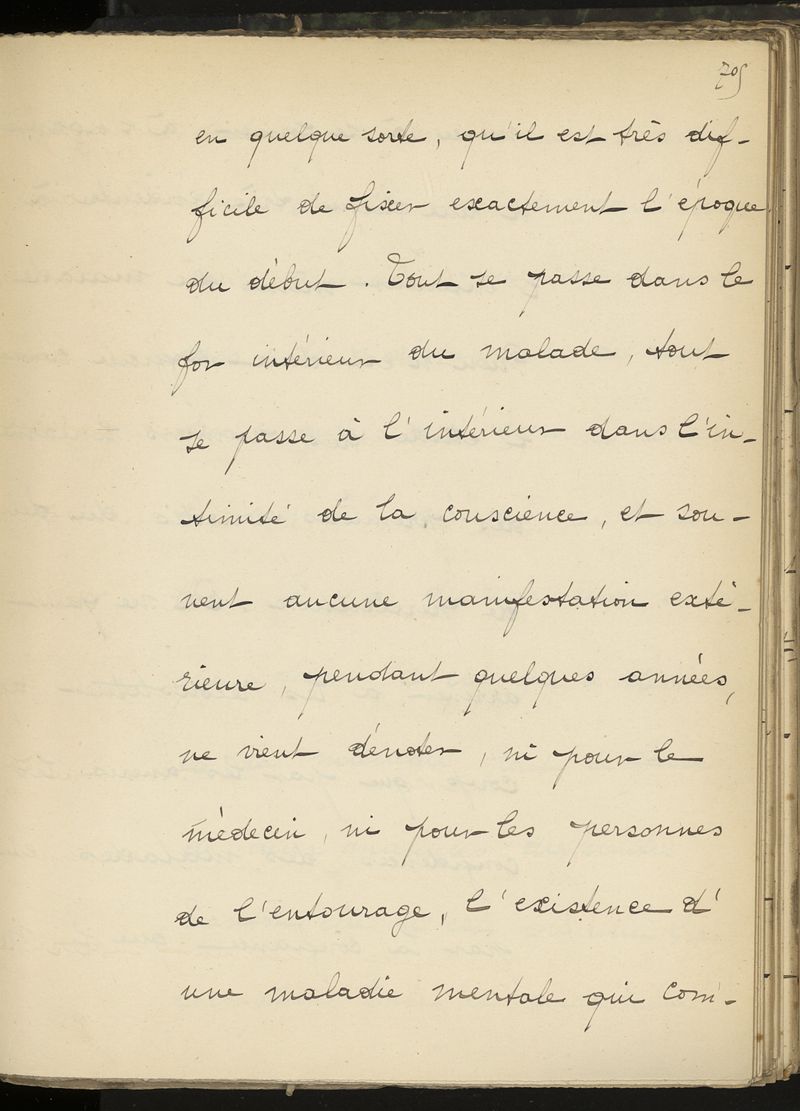 705
en quelque sorte, qu'il est très dif-
ficile de fixer exactement l'époque
du début. Tout se passe dans le
for intérieur du malade, tout
se passe à l'intérieur dans l'in-
timité de la conscience, et sou-
vent aucune manifestation exté-
rieure, pendant quelques années,
ne vient dénoter, ni pour le
médecin, ni pour les personnes
de l'entourage, l'existence d'
une maladie mentale qui com-